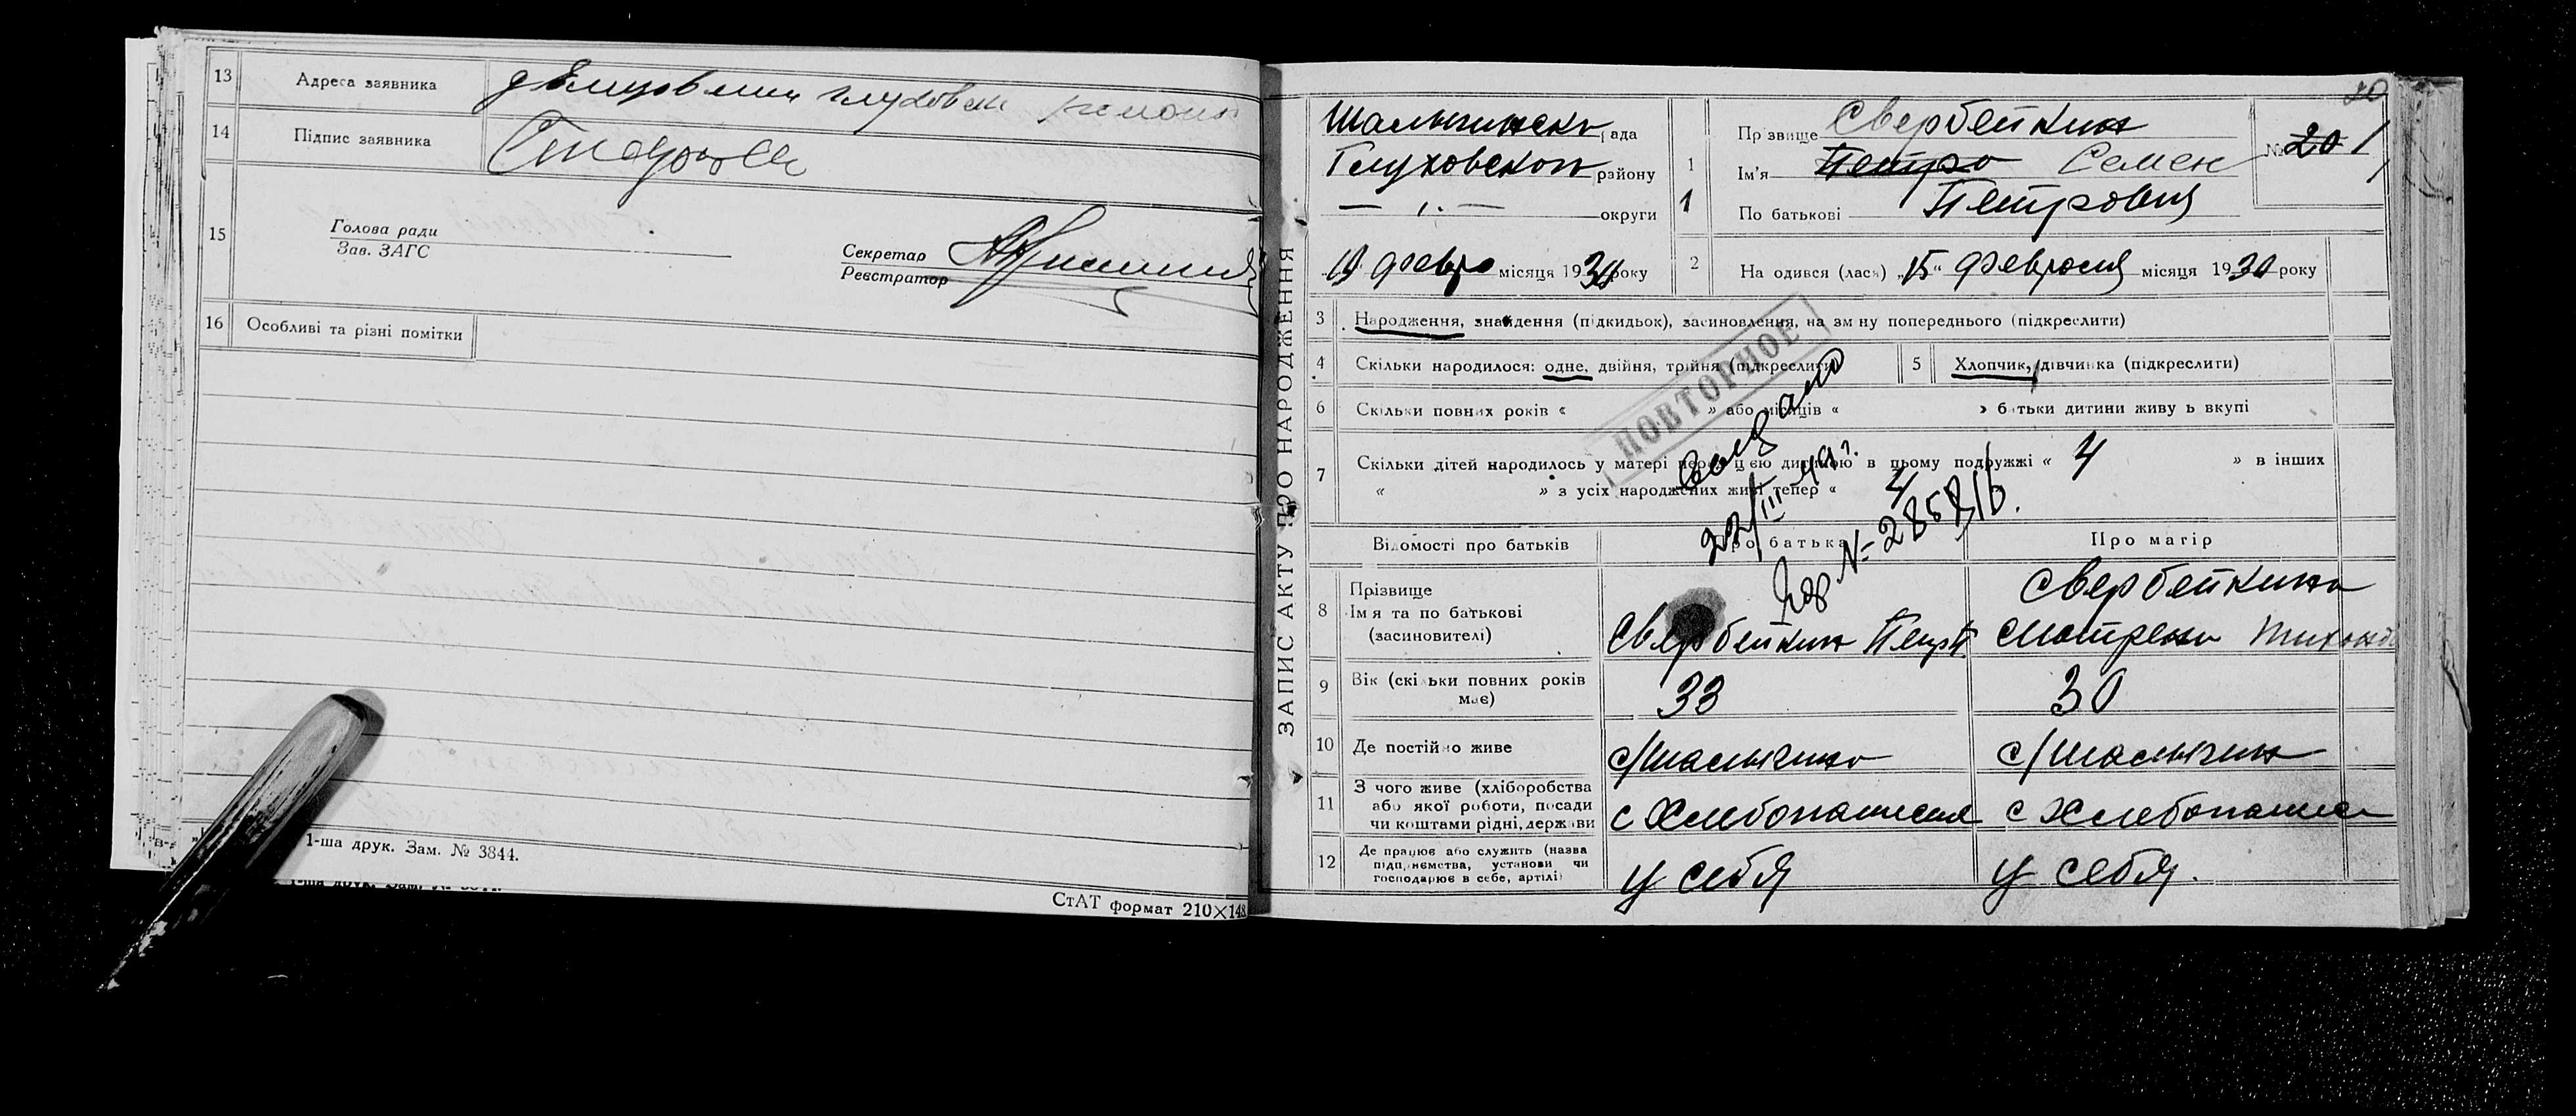 13 Адреса заявника
14 Підпис заявника
15 Голова ради
Зав. ЗАГС
Секретар
Реєстратор
16 Особливі та різні помітки
1-ша друк. Зам. № 3844.
СтАТ формат 210×148
ЗАПИС АКТУ ПРО НАРОДЖЕННЯ
20
Шалыгинска рада
Глуховского району
округи
19 февра місяця 1930 року
1
1 Прізвище Свербейкин
Ім'я Петро Семен
По батькові Петровия
№ 20 1
2 На одився (лася) „15“ Февраля місяця 1930 року
3 Народження, знайдення (підкидьок), засиновлення, на зм ну попереднього (підкреслити)
4 Скільки народилося: одне, двійня, трійня (підкреслити)
5 Хлопчик, дівчинка (підкреслити)
6 Скільки повних років « » або місяців « » батьки дитини живу ь вкупі
7 Скільки дітей народилось у матері перед цією дитиною в цьому подружжі « 4 » в інших
« » з усіх народжених живі тепер « 4
ПОВТОРНОЕ
выдано
22/III
№ 285816.
Відомості про батьків
Про батька
Про матір
8 Прізвище
Ім я та по батькові
(засиновителі)
Свербейкин Петр
Свербейкина
Мотрена Тихонов
9 Вік (скільки повних років
має)
33
30
10 Де постійно живе
с/Шалыгино
с/Шалыгин
11 З чого живе (хліборобства
або якої роботи, посади
чи коштами рідні, держави
с Хлебопашеся
с Хлебопашес
12 Де працює або служить (назва
підприємства, установи чи
господарює в себе, артілі
у себя
у себя.